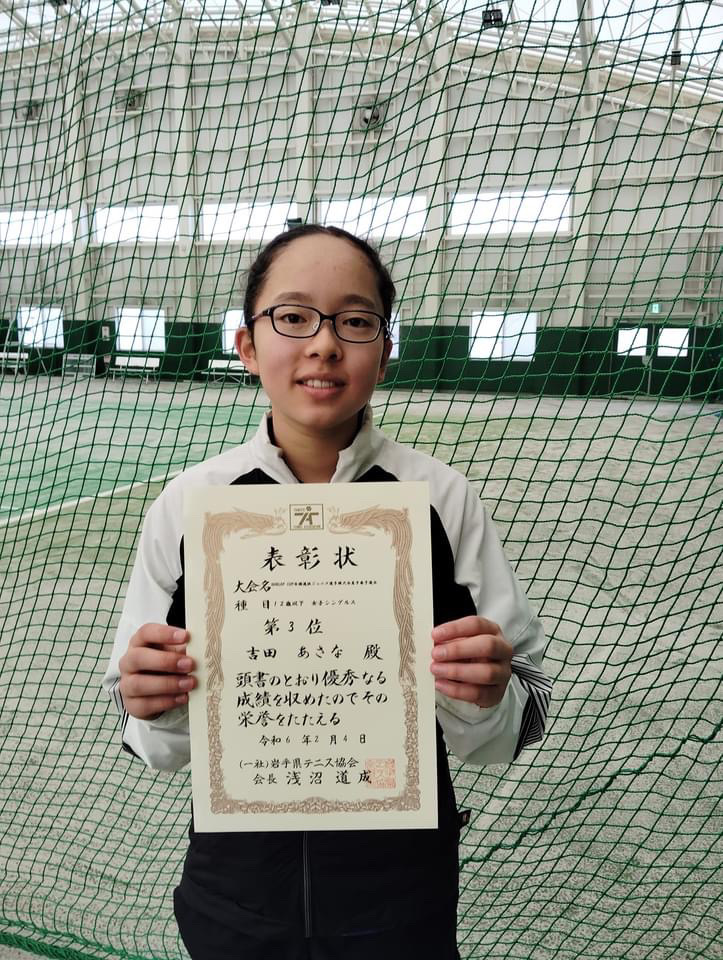 表彰状
大会名 DUNLOP CUP全国選抜ジュニア選手権大会岩手県予選会
種目 12歳以下 女子シングルス
第3位
吉田 あさな 殿
頭書のとおり優秀なる
成績を収めたのでその
栄誉をたたえる
令和6年2月4日
(一社)岩手県テニス協会
会長 浅沼道成